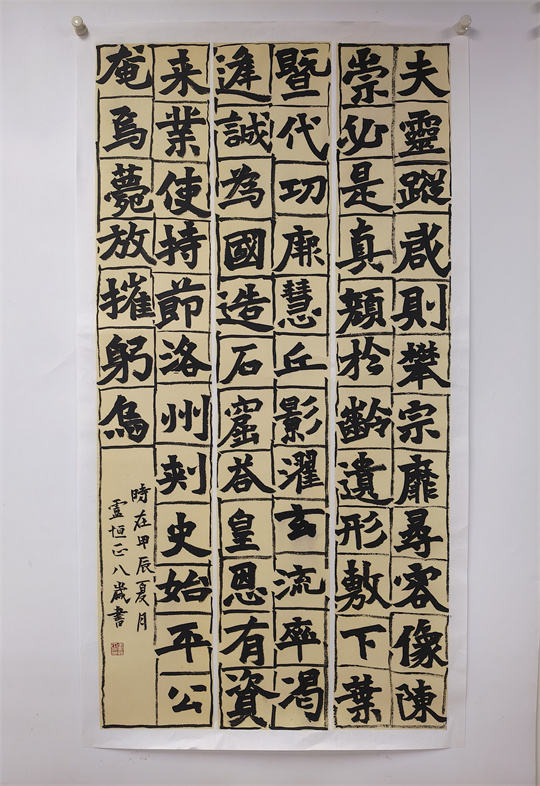 夫靈蹤咸則攀宗靡尋容像陳
崇必是真顏於齡遺形敷下葉
暨代功厥慧丘影濯玄流率渴
逢誠為國造石窟荅皇恩有資
来業使持節洛州刺史始平公
奄焉薨放摧躬烏
時在甲辰夏月
恒正八歲書